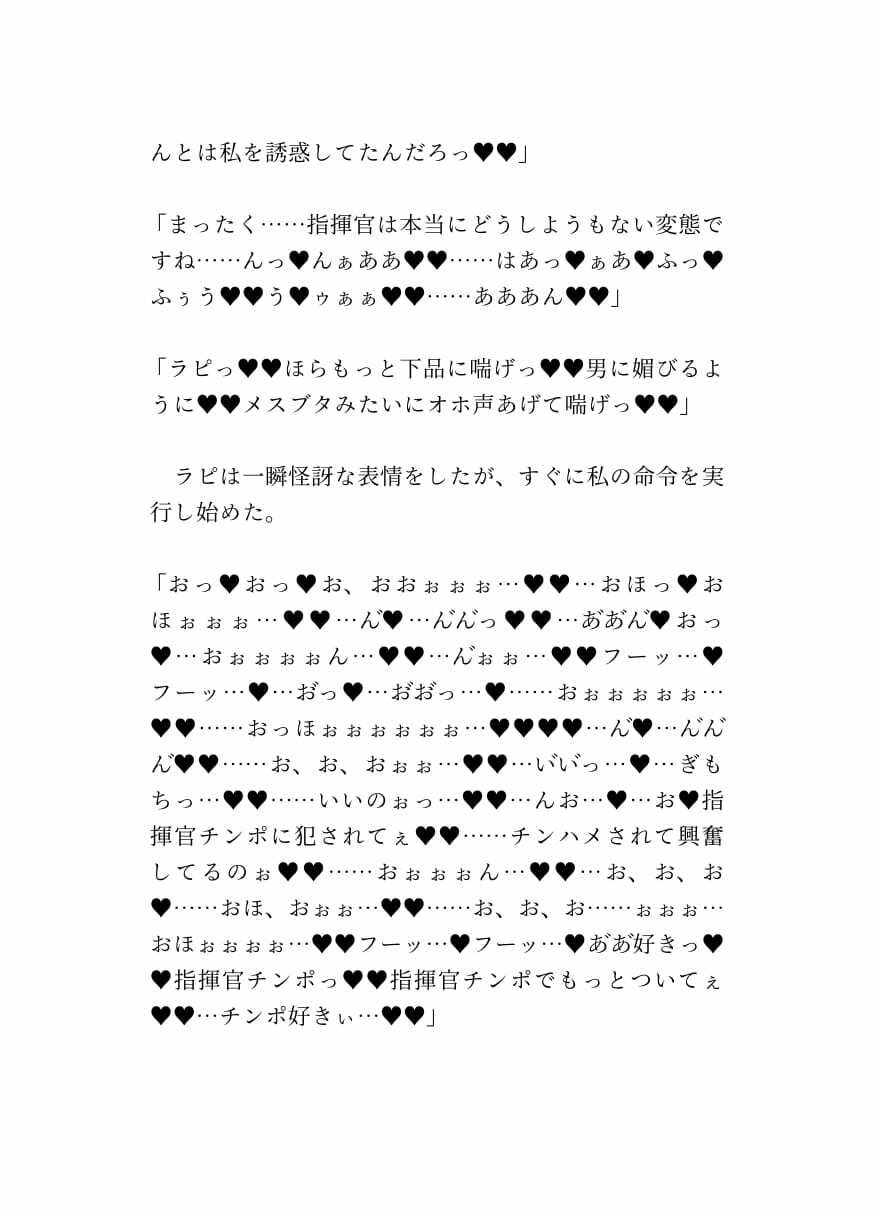 んとは私を誘惑してたんだろっ♥♥」
「まったく……指揮官は本当にどうしようもない変態で
すね……んっ♥んぁああ♥♥……はあっ♥ぁあ♥ふっ♥
ふぅう♥♥う♥ゥぁぁ♥♥……あああん♥♥」
「ラピっ♥♥ほらもっと下品に喘げっ♥♥男に媚びるよ
うに♥♥メスブタみたいにオホ声あげて喘げっ♥♥」
　ラピは一瞬怪訝な表情をしたが、すぐに私の命令を実
行し始めた。
「おっ♥おっ♥お、おおぉぉぉ…♥♥…おほっ♥お
ほぉぉぉ…♥♥…ん゛♥…ん゛ん゛っ♥♥…あ゛あ゛ん゛♥おっ
♥…おぉぉぉぉん…♥♥…ん゛ぉぉ…♥♥フーッ…♥
フーッ…♥…お゛っ♥…お゛お゛っ…♥……おぉぉぉぉぉ…
♥♥……おっほぉぉぉぉぉぉ…♥♥♥♥…ん゛♥…ん゛ん゛
ん゛♥♥……お、お、おぉぉ…♥♥…い゛い゛っ…♥…ぎも
ちっ…♥♥……いいのぉっ…♥♥…んお…♥…お♥指
揮官チンポに犯されてぇ♥♥……チンハメされて興奮
してるのぉ♥♥……おぉぉぉん…♥♥…お、お、お
♥……おほ、おぉぉ…♥♥……お、お、お……ぉぉぉ…
おほぉぉぉぉ…♥♥フーッ…♥フーッ…♥あ゛あ゛好きっ♥
♥指揮官チンポっ♥♥指揮官チンポでもっとついてぇ
♥♥…チンポ好きぃ…♥♥」